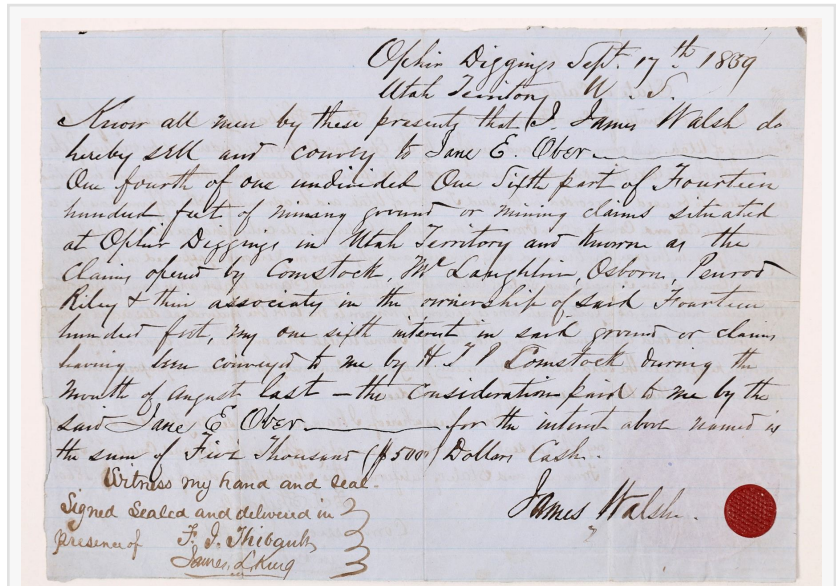 Ophir Diggings Sept. 17th 1859
Utah Territory U. S.
Know all men by these presents that I James Walsh do
hereby sell and convey to Jane E. Ober
One fourth of one undivided One Sixth part of Fourteen
hundred feet of mining ground or mining claims situated
at Ophir Diggings in Utah Territory and known as the
Claims opend by Comstock, McLaughlin, Osborn, Penrod
Riley & their associats in the ownership of said Fourteen
hundred feet, my one sixth interest in said ground or claims
having been conveyed to me by H. T. P Comstock during the
month of August last – the consideration paid to me by the
said Jane E Ober for the interest above named is
the sum of Five Thousand ($5000) Dollars Cash.
Witness my hand and seal.
Signed Sealed and delivered in
presence of F. J. Thibault
James L. King
James Walsh